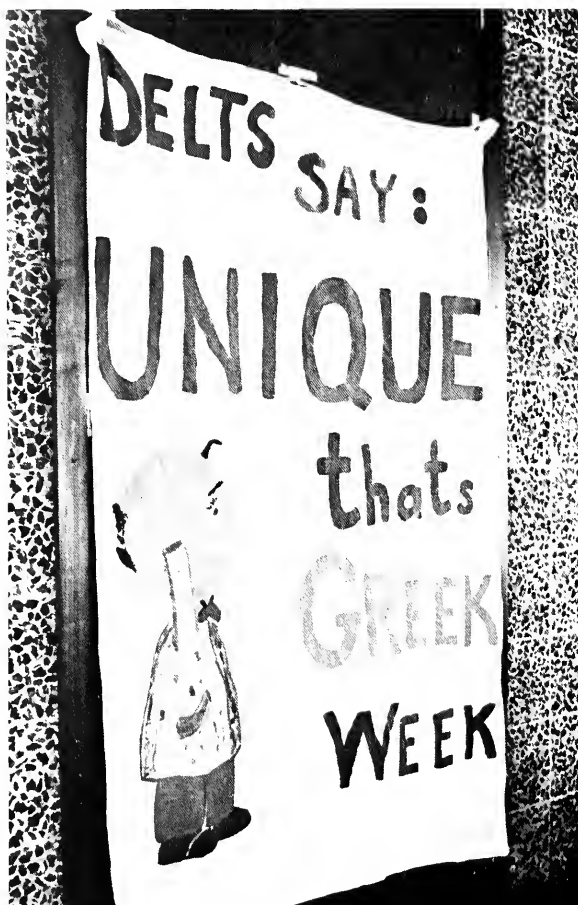 DELTS
SAY:
UNIQUE
thats
GREEK
WEEK